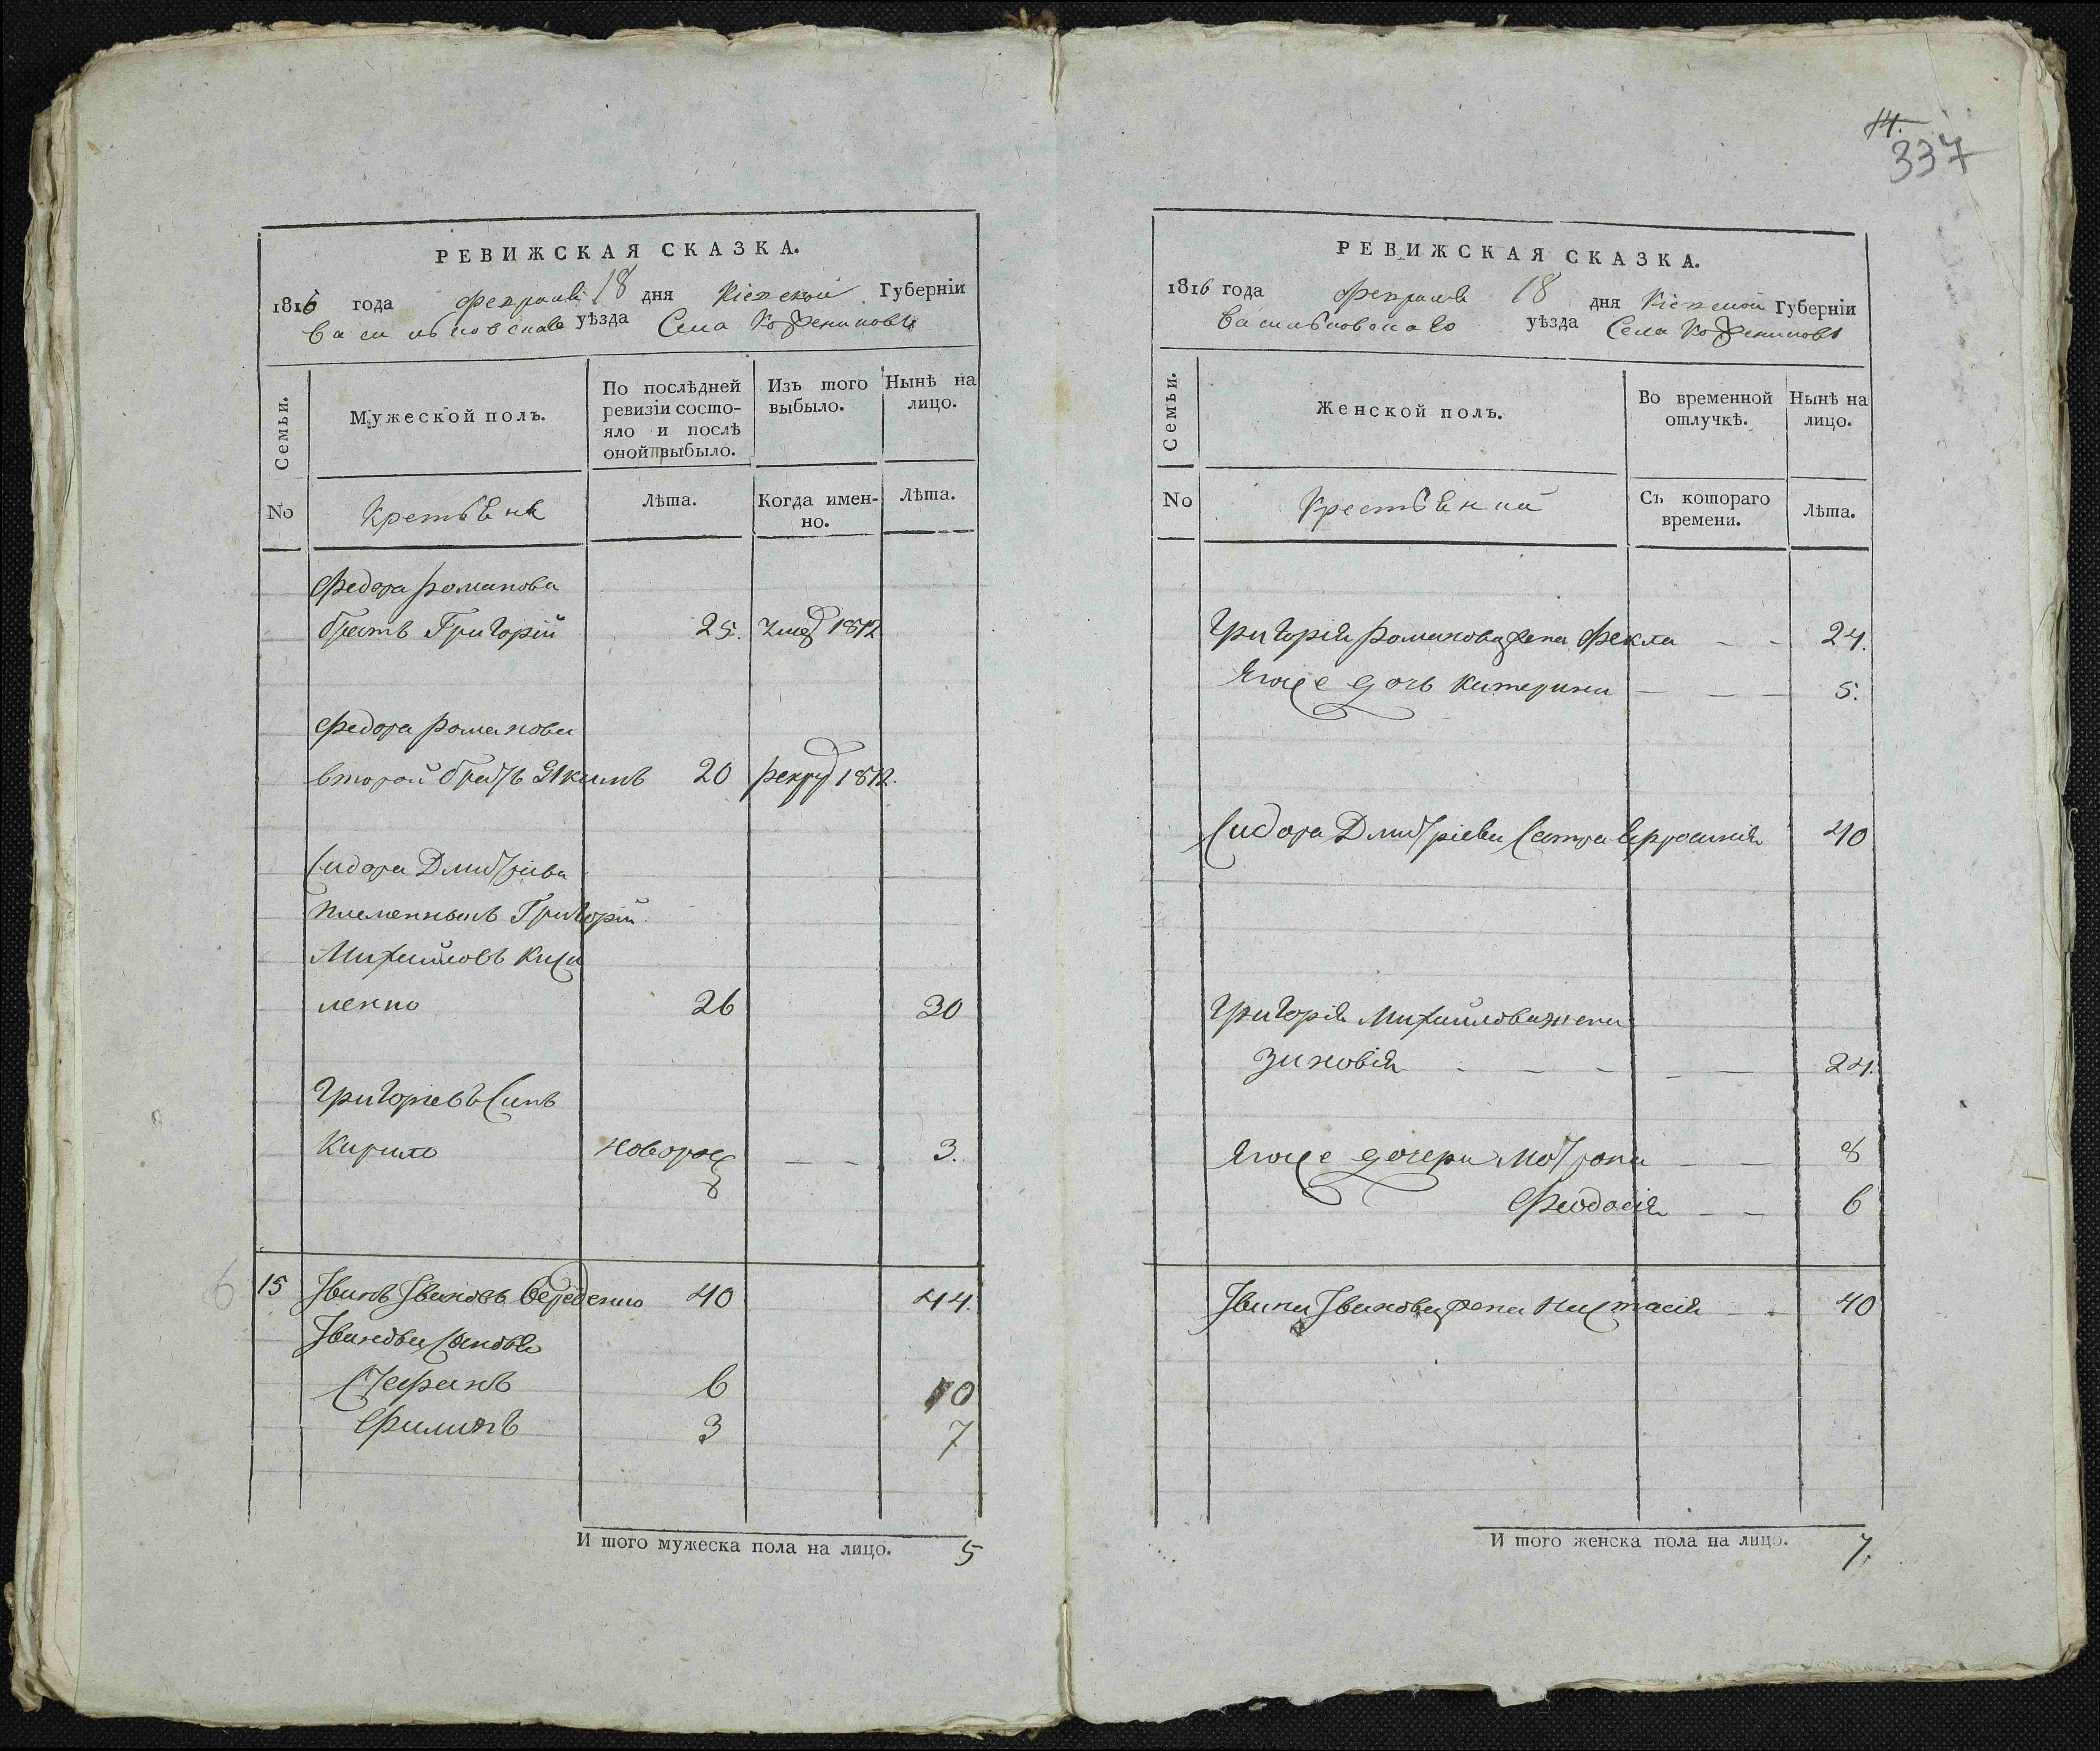 14.
337
РЕВИЖСКАЯ СКАЗКА.
1816 года февраля 18 дня Кіевской Губерніи
Васильковскаго уѣзда Села Кожениковъ
Семьи.
Мужеской полъ.
По послѣдней ревизіи состо-
яло и послѣ оной прибыло.
Изъ того выбыло.
Нынѣ на лицо.
No
Крестьяне
Лѣта.
Когда имен-
но.
Лѣта.
Федора романова
братъ Григорій 25. умер 1812
Федора романова
второй братъ Якимъ 20 рекрут 1812.
Сидора Дмитріева
племенныкъ Григорій
Михайловъ Киси
ленко 26 30
Григоріевъ Синъ
Кирило новорож 3.
15 Іванъ Івановъ Середенко 40 44.
Іванови Синовья
Стефанъ 6 10
Филипъ 3 7
И того мужеска пола на лицо. 5
РЕВИЖСКАЯ СКАЗКА.
1816 года февраля 18 дня Кіевской Губерніи
Васильковскаго уѣзда Села Кожениковъ
Семьи.
Женской полъ.
Во временной отлучкѣ.
Нынѣ на лицо.
No
Съ котораго времени.
Лѣта.
Григорія романова жена Фекла 24.
Єгоже дочь Катерина 5.
Сидора Дмитріева Сестра 40
Григорія Михайлова жена
Зиновія 24.
Єгоже дочери Мотрона 8
Феодосія 6
Івана Іванова жена Настасія 40
И того женска пола на лицо. 7.